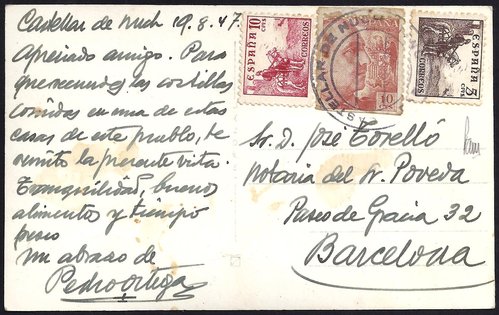 Castellar de Nuch 19.8.47.
Apreciado amigo. Para
que recuerdes las costillas
comidas en una de estas
casas de este pueblo, te
remito la presente vista.
Tranquilidad, buenos
alimentos y tiempo
fresco
Un abrazo de
Pedro Ortega
10 CTS
ESPAÑA
CORREOS
10
CASTELLAR DE NUCH
5 CTS
ESPAÑA
CORREOS
Sr. D. José Torelló
Notaria del Sr. Poveda
Paseo de Gracia 32
Barcelona